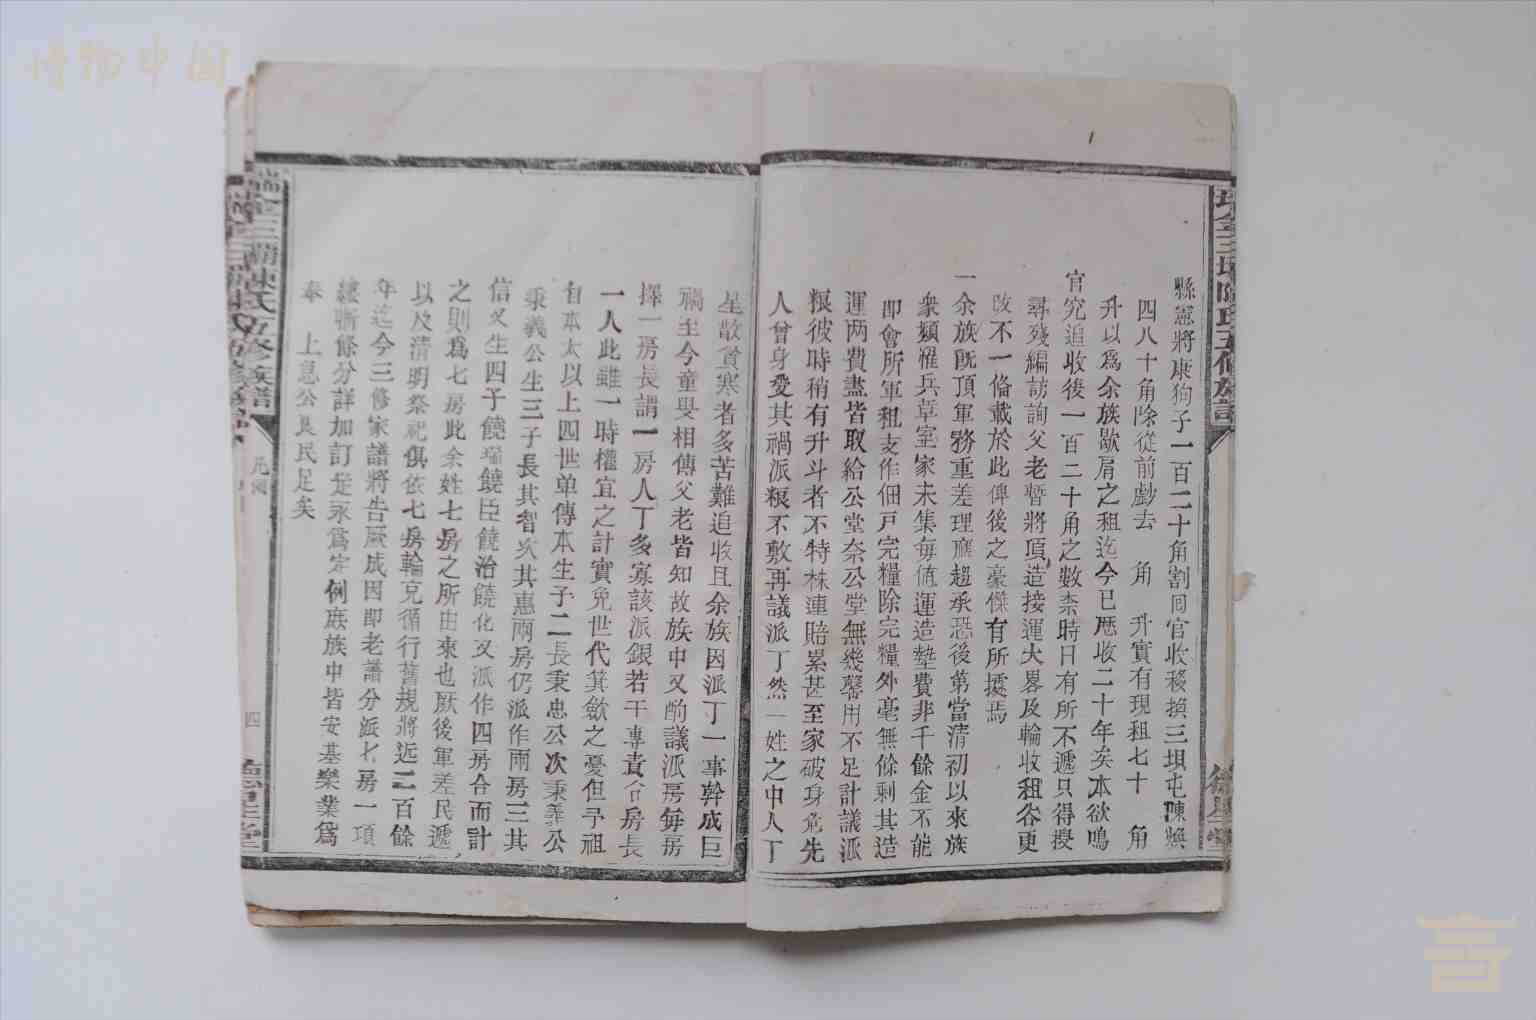 縣憲將康狗子一百二十角割囘官收移換三坝屯陳煥
四八十角除從前戯去　角　升實有現租七十　角
升以爲余族歇肩之租迄今已歷收二十年矣本欲鳴
官究追收後一百二十角之數柰時日有所不遞只得搜
尋殘編訪詢父老暫將頂造接運大畧及輪收租谷更
改不一俻載於此俾後之豪傑有所㨿焉
一余族旣頂軍務重差理應趨承恐後第當清初以來族
衆頗罹兵草室家未集每值運造墊費非千餘金不能
即會所軍租支作佃戸完糧除完糧外毫無餘剩其造
運两費盡皆取給公堂奈公堂無幾罄用不足計議派
粮彼時稍有升斗者不特株連賠累甚至家破身危先
人曾身受其禍派粮不敷再議派丁然一姓之中人丁
星散貧寒者多苦難追收且余族因派丁一事幹成巨
禍至今童叟相傳父老皆知故族中又酌議派房每房
擇一房長謂一房人丁多寡該派銀若干專責合房長
一人此雖一時權宜之計實免世代箕歛之憂但予祖
自本太以上四世单傳本生子二長秉忠公次秉義公
秉義公生三子長其智次其惠兩房仍派作兩房三其
信又生四子饒瑞饒臣饒治饒化又派作四房合而計
之則爲七房此余姓七房之所由來也厥後軍差民遞
以及清明祭祀俱依七房輪充循行舊規將近二百餘
年迄今三修家譜將告厥成因即老譜分派七房一項
縷晰條分詳加訂㝎永爲㝎例庶族中皆安基樂業爲
奉　上急公良民足矣
瑞金三㘔陳氏五修族譜
四